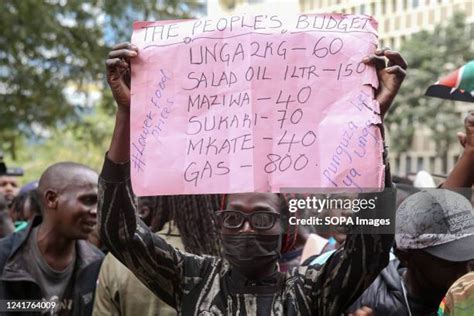 THE PEOPLE'S BUDGET
UNGA 2KG - 60
SALAD OIL 1LTR - 150
MAZIWA - 40
SUKARI - 70
MKATE - 40
GAS - 800
#Lower Food Prices
Punguza bei ya
gettyimages
Credit: SOPA Images
1241764009